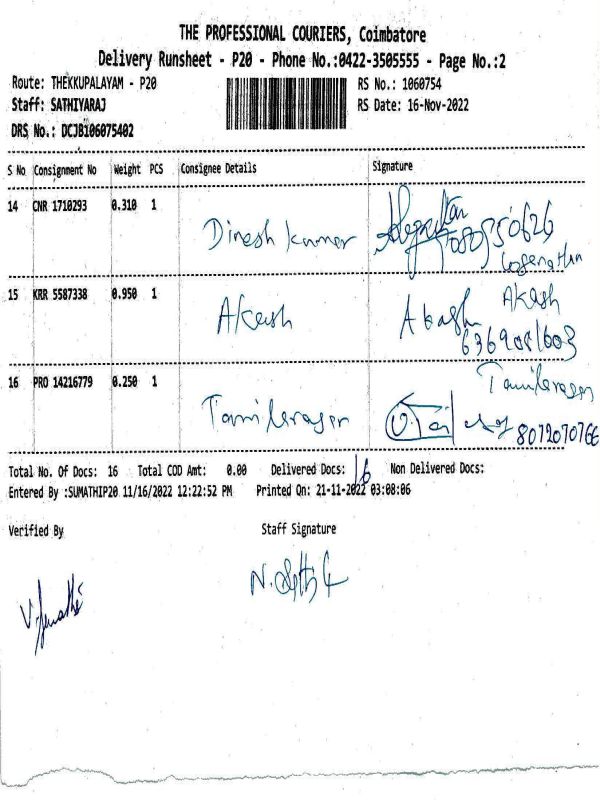 THE PROFESSIONAL COURIERS, Coimbatore
Delivery Runsheet - P20 - Phone No.:0422-3505555 - Page No.:2
Route: THEKKUPALAYAM - P20 RS No.: 1060754
Staff: SATHIYARAJ RS Date: 16-Nov-2022
DRS No.: DCJB106075402
S No Consignment No Weight PCS Consignee Details Signature
14 CNR 1710293 0.310 1 Dinesh kumar
15 KRR 5587338 0.950 1 Akash Akash Akash
16 PRO 14216779 0.250 1 Tamilarasan Tamilarasan
8072070766
Total No. Of Docs: 16 Total COD Amt: 0.00 Delivered Docs: 16 Non Delivered Docs:
Entered By :SUMATHIP20 11/16/2022 12:22:52 PM Printed On: 21-11-2022 03:08:06
Verified By Staff Signature